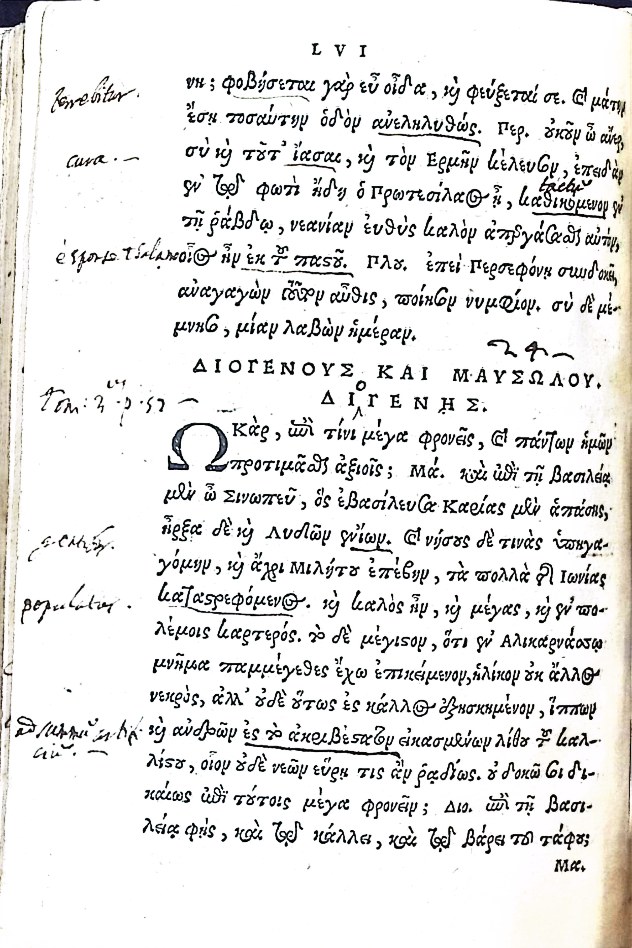 LVI
νη; φοβήσεται γὰρ εὖ οἶδα, καὶ φεύξεταί σε. καὶ μάτην
ἔσῃ τοσαύτην ὁδὸν ἀνεληλυθώς. Περ. οὐκοῦν ὦ ἄνερ,
σὺ καὶ τοῦτ' ἴασαι, καὶ τὸν Ἑρμῆν κέλευσον, ἐπειδὰν
cura.
ἐν τῷ φωτὶ ἤδη ὁ Πρωτεσίλαος ᾖ, καθικόμενον ἐν
τῇ ῥάβδῳ, νεανίαν εὐθὺς καλὸν ἀπεργάσασθαι αὐτὸν,
οἷος ἦν ἐκ τοῦ παστοῦ. Πλου. ἐπεὶ Περσεφόνῃ συνδοκεῖ,
ἀναγαγὼν τοῦτον αὖθις, ποίησον νυμφίον. σὺ δὲ μέ-
μνησο, μίαν λαβὼν ἡμέραν.
24
ΔΙΟΓΕΝΟΥΣ ΚΑΙ ΜΑΥΣΩΛΟΥ.
ΔΙΟΓΕΝΗΣ.
Ὦ ΚΑΡ, ἐπὶ τίνι μέγα φρονεῖς, καὶ πάντων ἡμῶν
προτιμᾶσθαι ἀξιοῖς; Μά. καὶ ἐπὶ τῇ βασιλείᾳ
μὲν ὦ Σινωπεῦ, ὃς ἐβασίλευσα Καρίας μὲν ἁπάσης,
ἦρξα δὲ καὶ Λυδῶν ἐνίων. καὶ νήσους δὲ τινὰς ὑπηγα-
γόμην, καὶ ἄχρι Μιλήτου ἐπέβην, τὰ πολλὰ τῆς Ἰωνίας
populatus.
καταστρεφόμενος. καὶ καλὸς ἦν, καὶ μέγας, καὶ ἐν πο-
λέμοις καρτερός. τὸ δὲ μέγιστον, ὅτι ἐν Ἁλικαρνάσσῳ
μνῆμα παμμέγεθες ἔχω ἐπικείμενον, ἡλίκον οὐκ ἄλλος
νεκρὸς, ἀλλ' οὐδὲ οὕτως ἐς κάλλος ἐξησκημένον, ἵππων
καὶ ἀνδρῶν ἐς τὸ ἀκριβέστατον εἰκασμένων λίθου τοῦ καλ-
λίστου, οἷον οὐδὲ νεὼν εὕρῃ τις ἂν ῥᾳδίως. οὐ δοκῶ σοι δι-
καίως ἐπὶ τούτοις μέγα φρονεῖν; Διο. ἐπὶ τῇ βασι-
λείᾳ φῂς, καὶ τῷ κάλλει, καὶ τῷ βάρει τοῦ τάφου;
Μα.